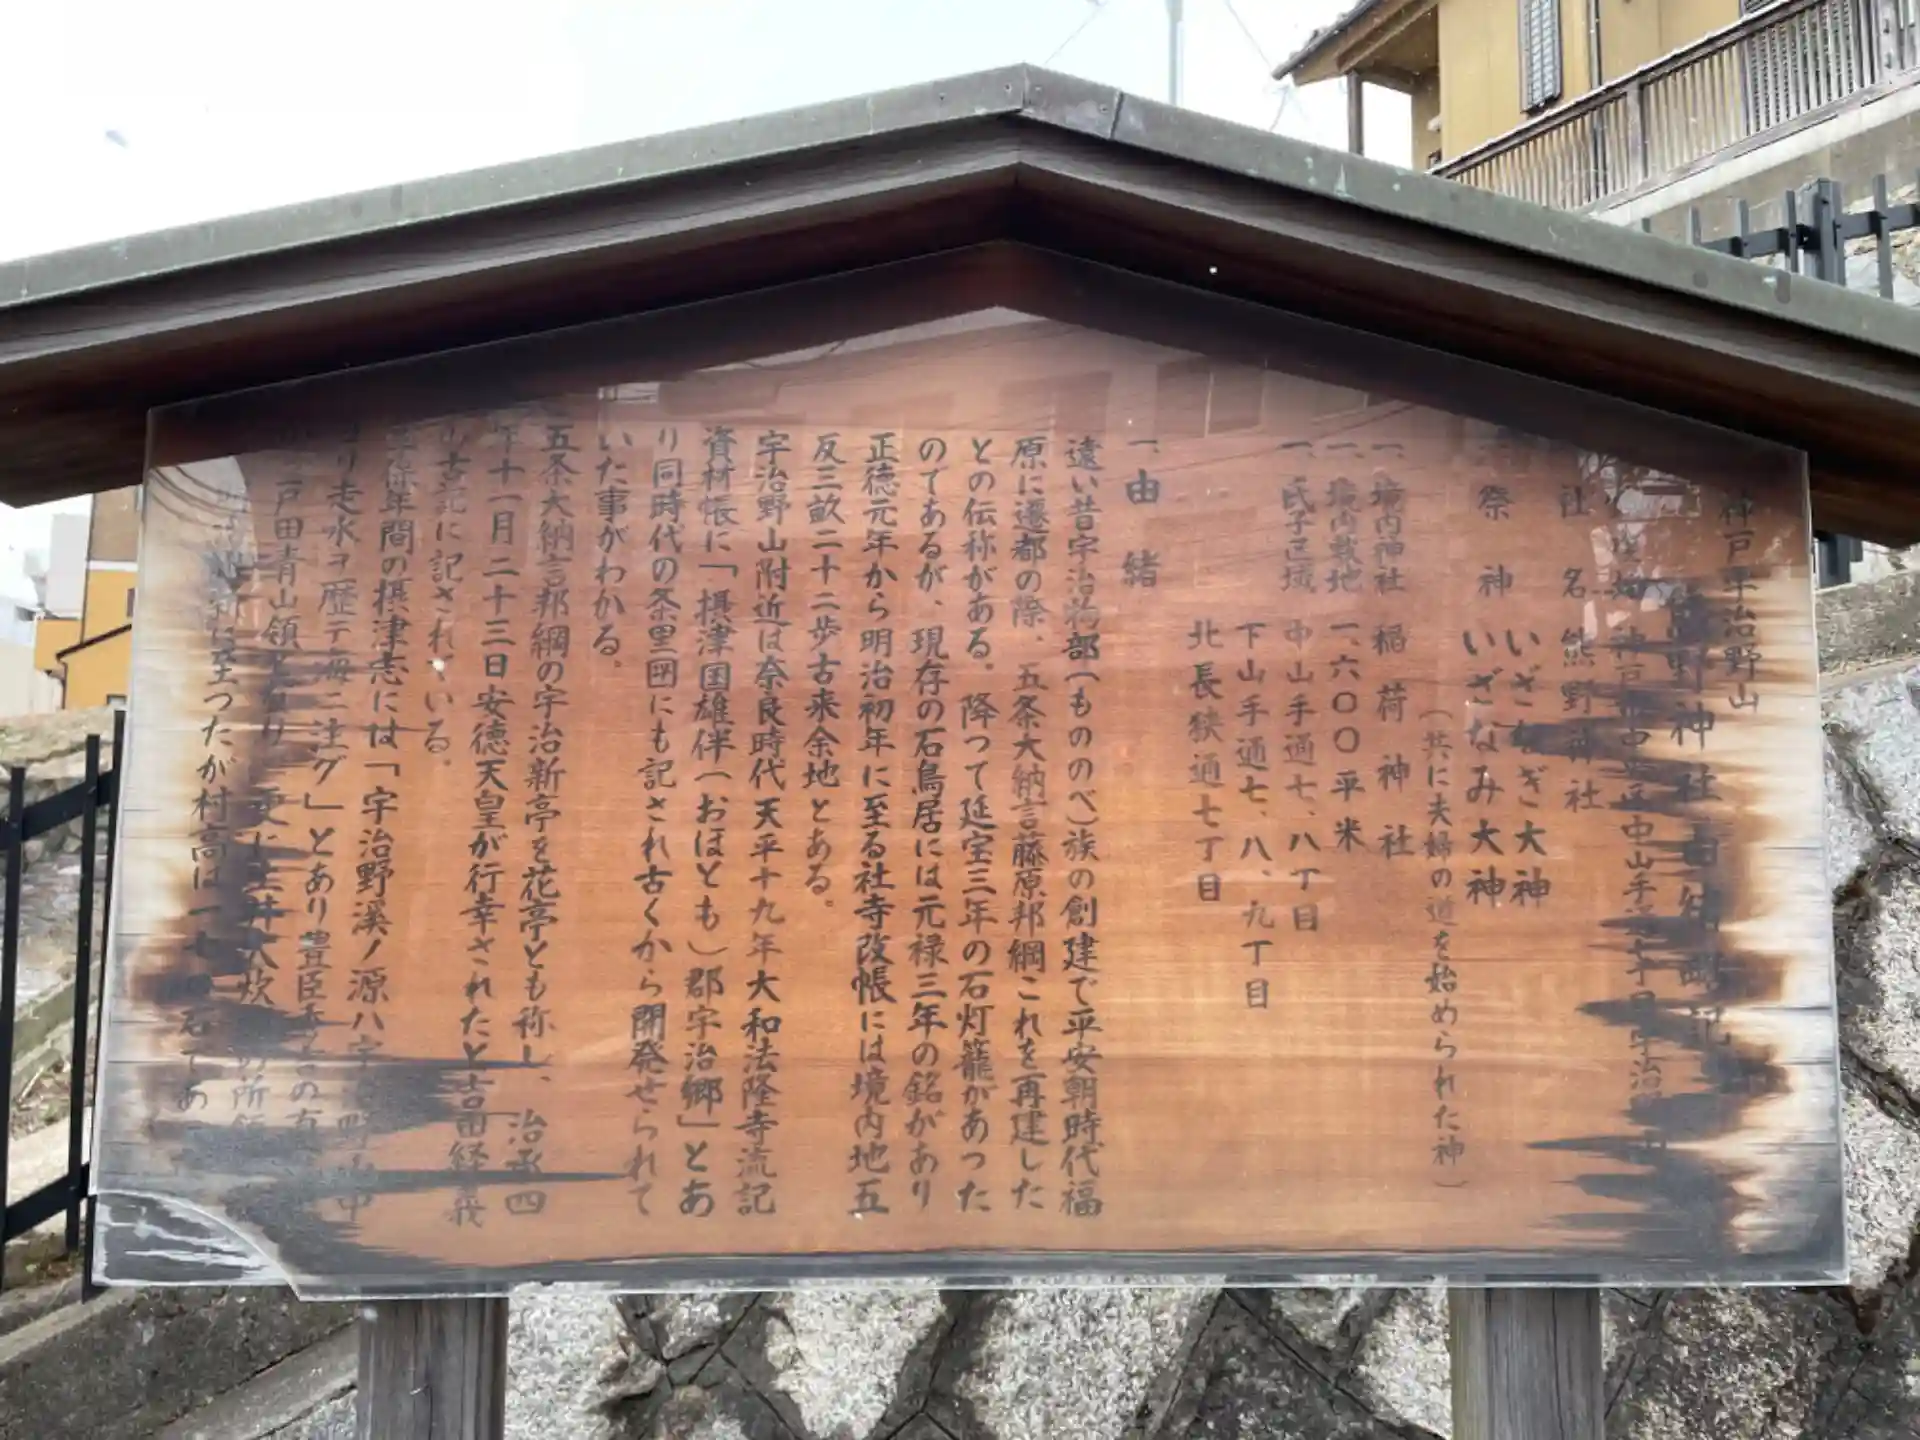 神戸宇治野山
熊野神社由緒略記
神戸市中央区中山手通
一、社名 熊野神社
一、祭神 いざなぎ大神
いざなみ大神
（共に夫婦の道を始められた神）
一、境内神社 稲荷神社
一、境内敷地 一、六〇〇平米
一、氏子区域 中山手通七、八丁目
下山手通七、八、九丁目
北長狭通七丁目
一、由緒
遠い昔宇治物部（もののべ）族の創建で平安朝時代福
原に遷都の際、五条大納言藤原邦綱これを再建した
との伝称がある。降つて延宝三年の石灯籠があった
のであるが、現存の石鳥居には元禄三年の銘があり
正徳元年から明治初年に至る社寺改帳には境内地五
反三畝二十二歩古来余地とある。
宇治野山附近は奈良時代天平十九年大和法隆寺流記
資材帳に「摂津国雄伴（おほとも）郡宇治郷」とあ
り同時代の条里図にも記され古くから開発せられて
いた事がわかる。
五条大納言邦綱の宇治新亭を花亭とも称し、治承四
年十一月二十三日安徳天皇が行幸されたと吉田経義
の古記に記されている。
享保年間の摂津志には「宇治野溪ノ源ハ宇治野山中
ヨリ走水ヲ歴テ海ニ注グ」とあり豊臣氏との
戸田青山領となり更に
に至つたが村高は